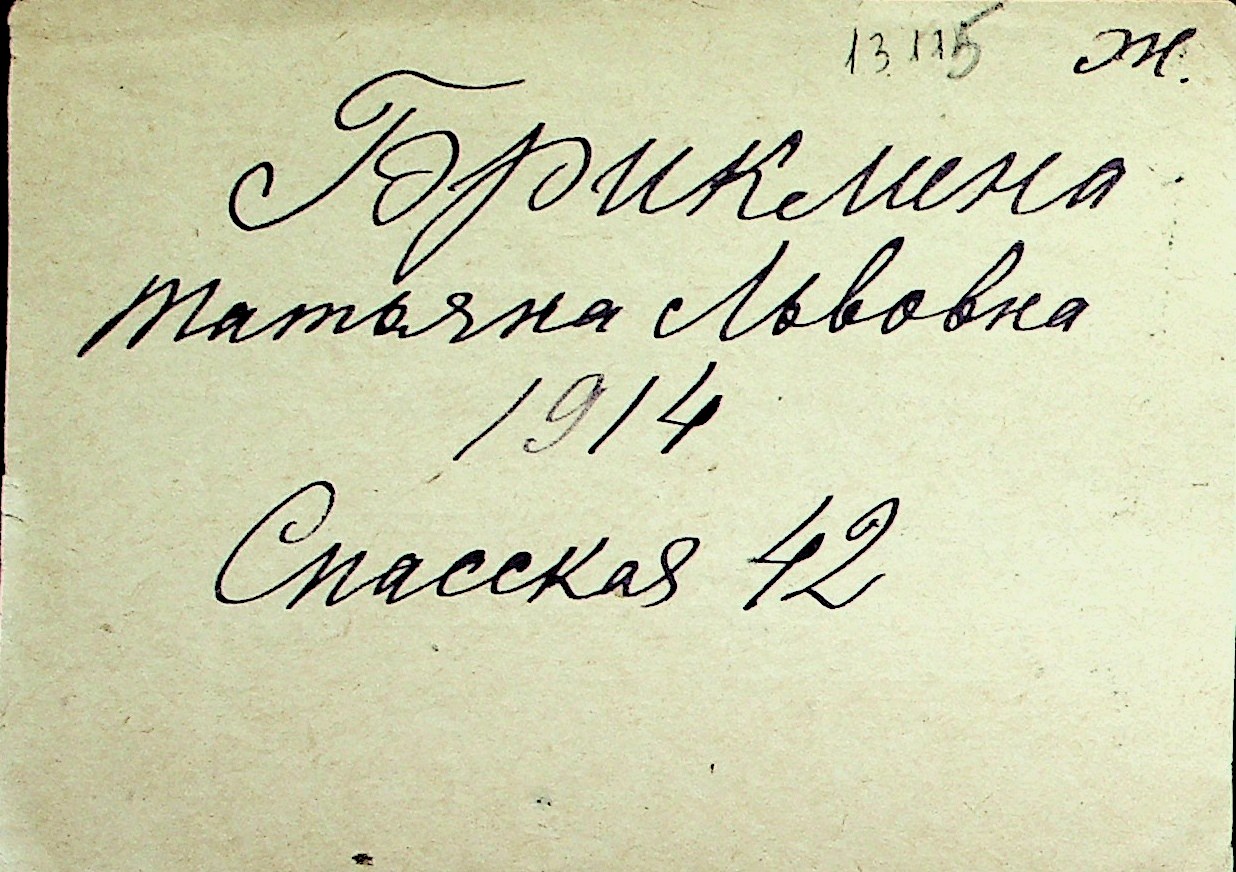 13.115 Ж.
Брикмена
Татьяна Львовна
1914
Спасская 42